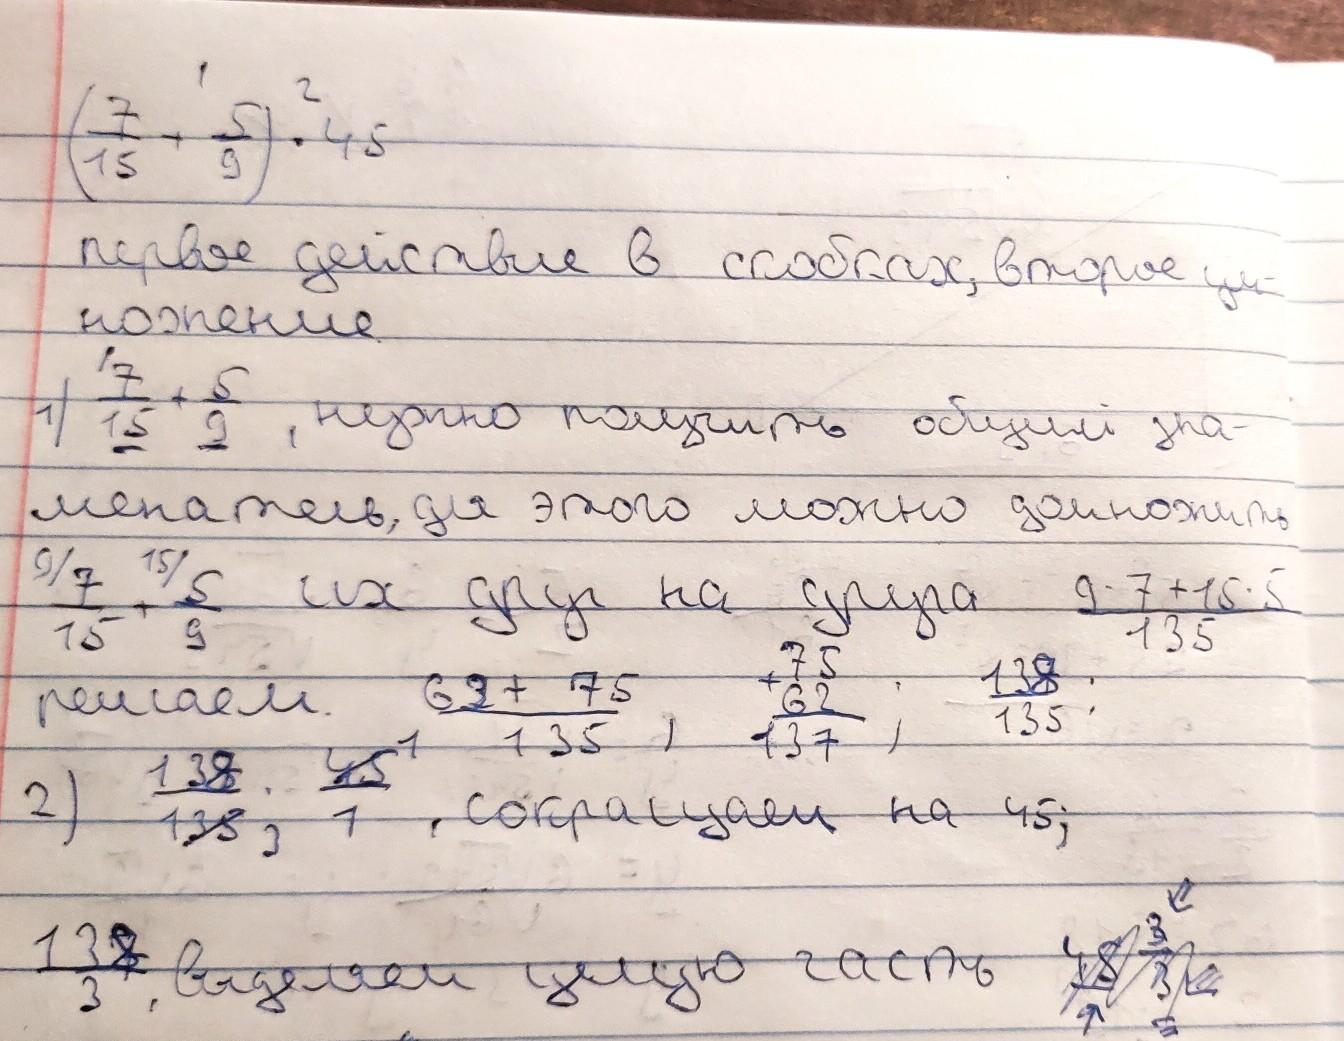 (7/15 + 5/9) · 45
1 2
первое действие в скобках, второе ум-
ножение
1) 7/15 + 5/9, нужно получить общий зна-
менатель, для этого можно домножить
9/ 7/15 + 15/ 5/9 их друг на друга 9·7+15·5/135
решаем. 63+75/135, 75+62 137, 138/135.
2) 138/135 3 · 45/1 1, сокращаем на 45;
138/3, выделяем целую часть